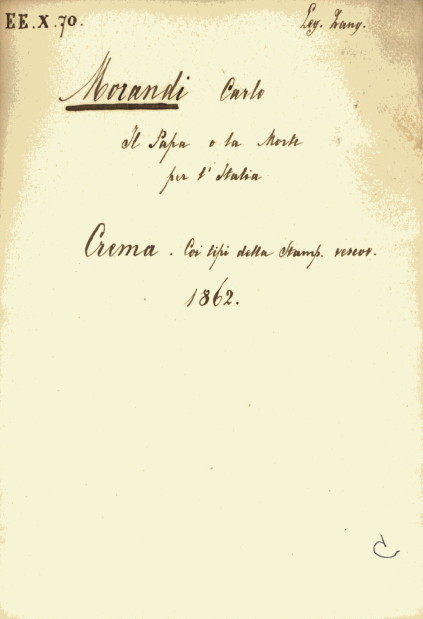 EE.X.70.
Leg. Zang.
Morandi Carlo
Il Papa o la Morte
per l'Italia
Crema. Coi tipi della Stamp. vescov.
1862.
C